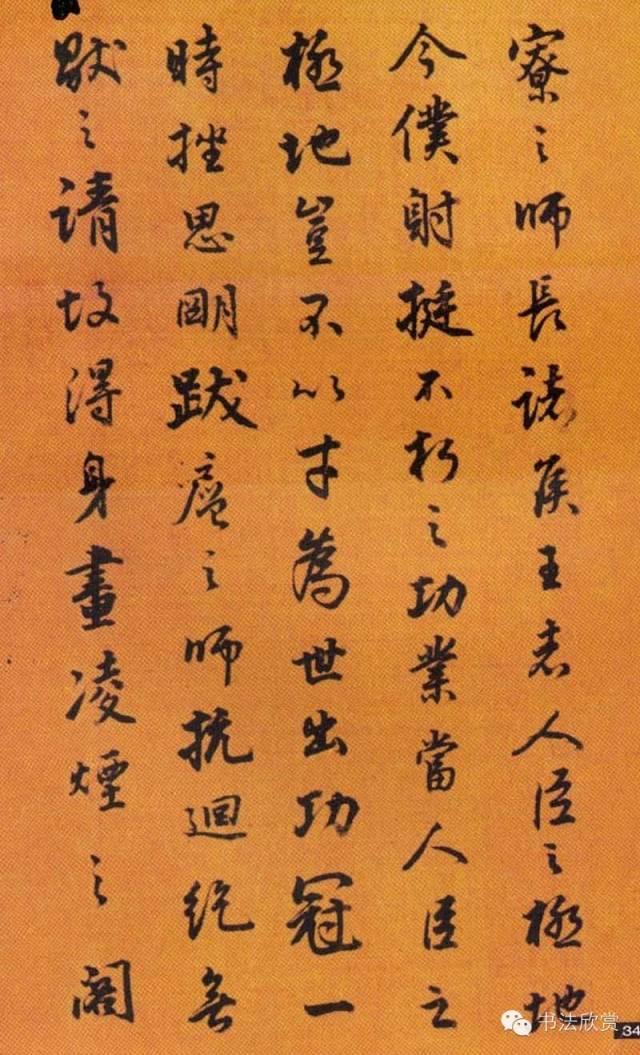 寮之師長諸侯王者人臣之極地
今僕射挺不朽之功業當人臣之
極地豈不以才為世出功冠一
時挫思明跋扈之師抗迴紇無
猒之請故得身畫凌煙之閣
书法欣赏
34